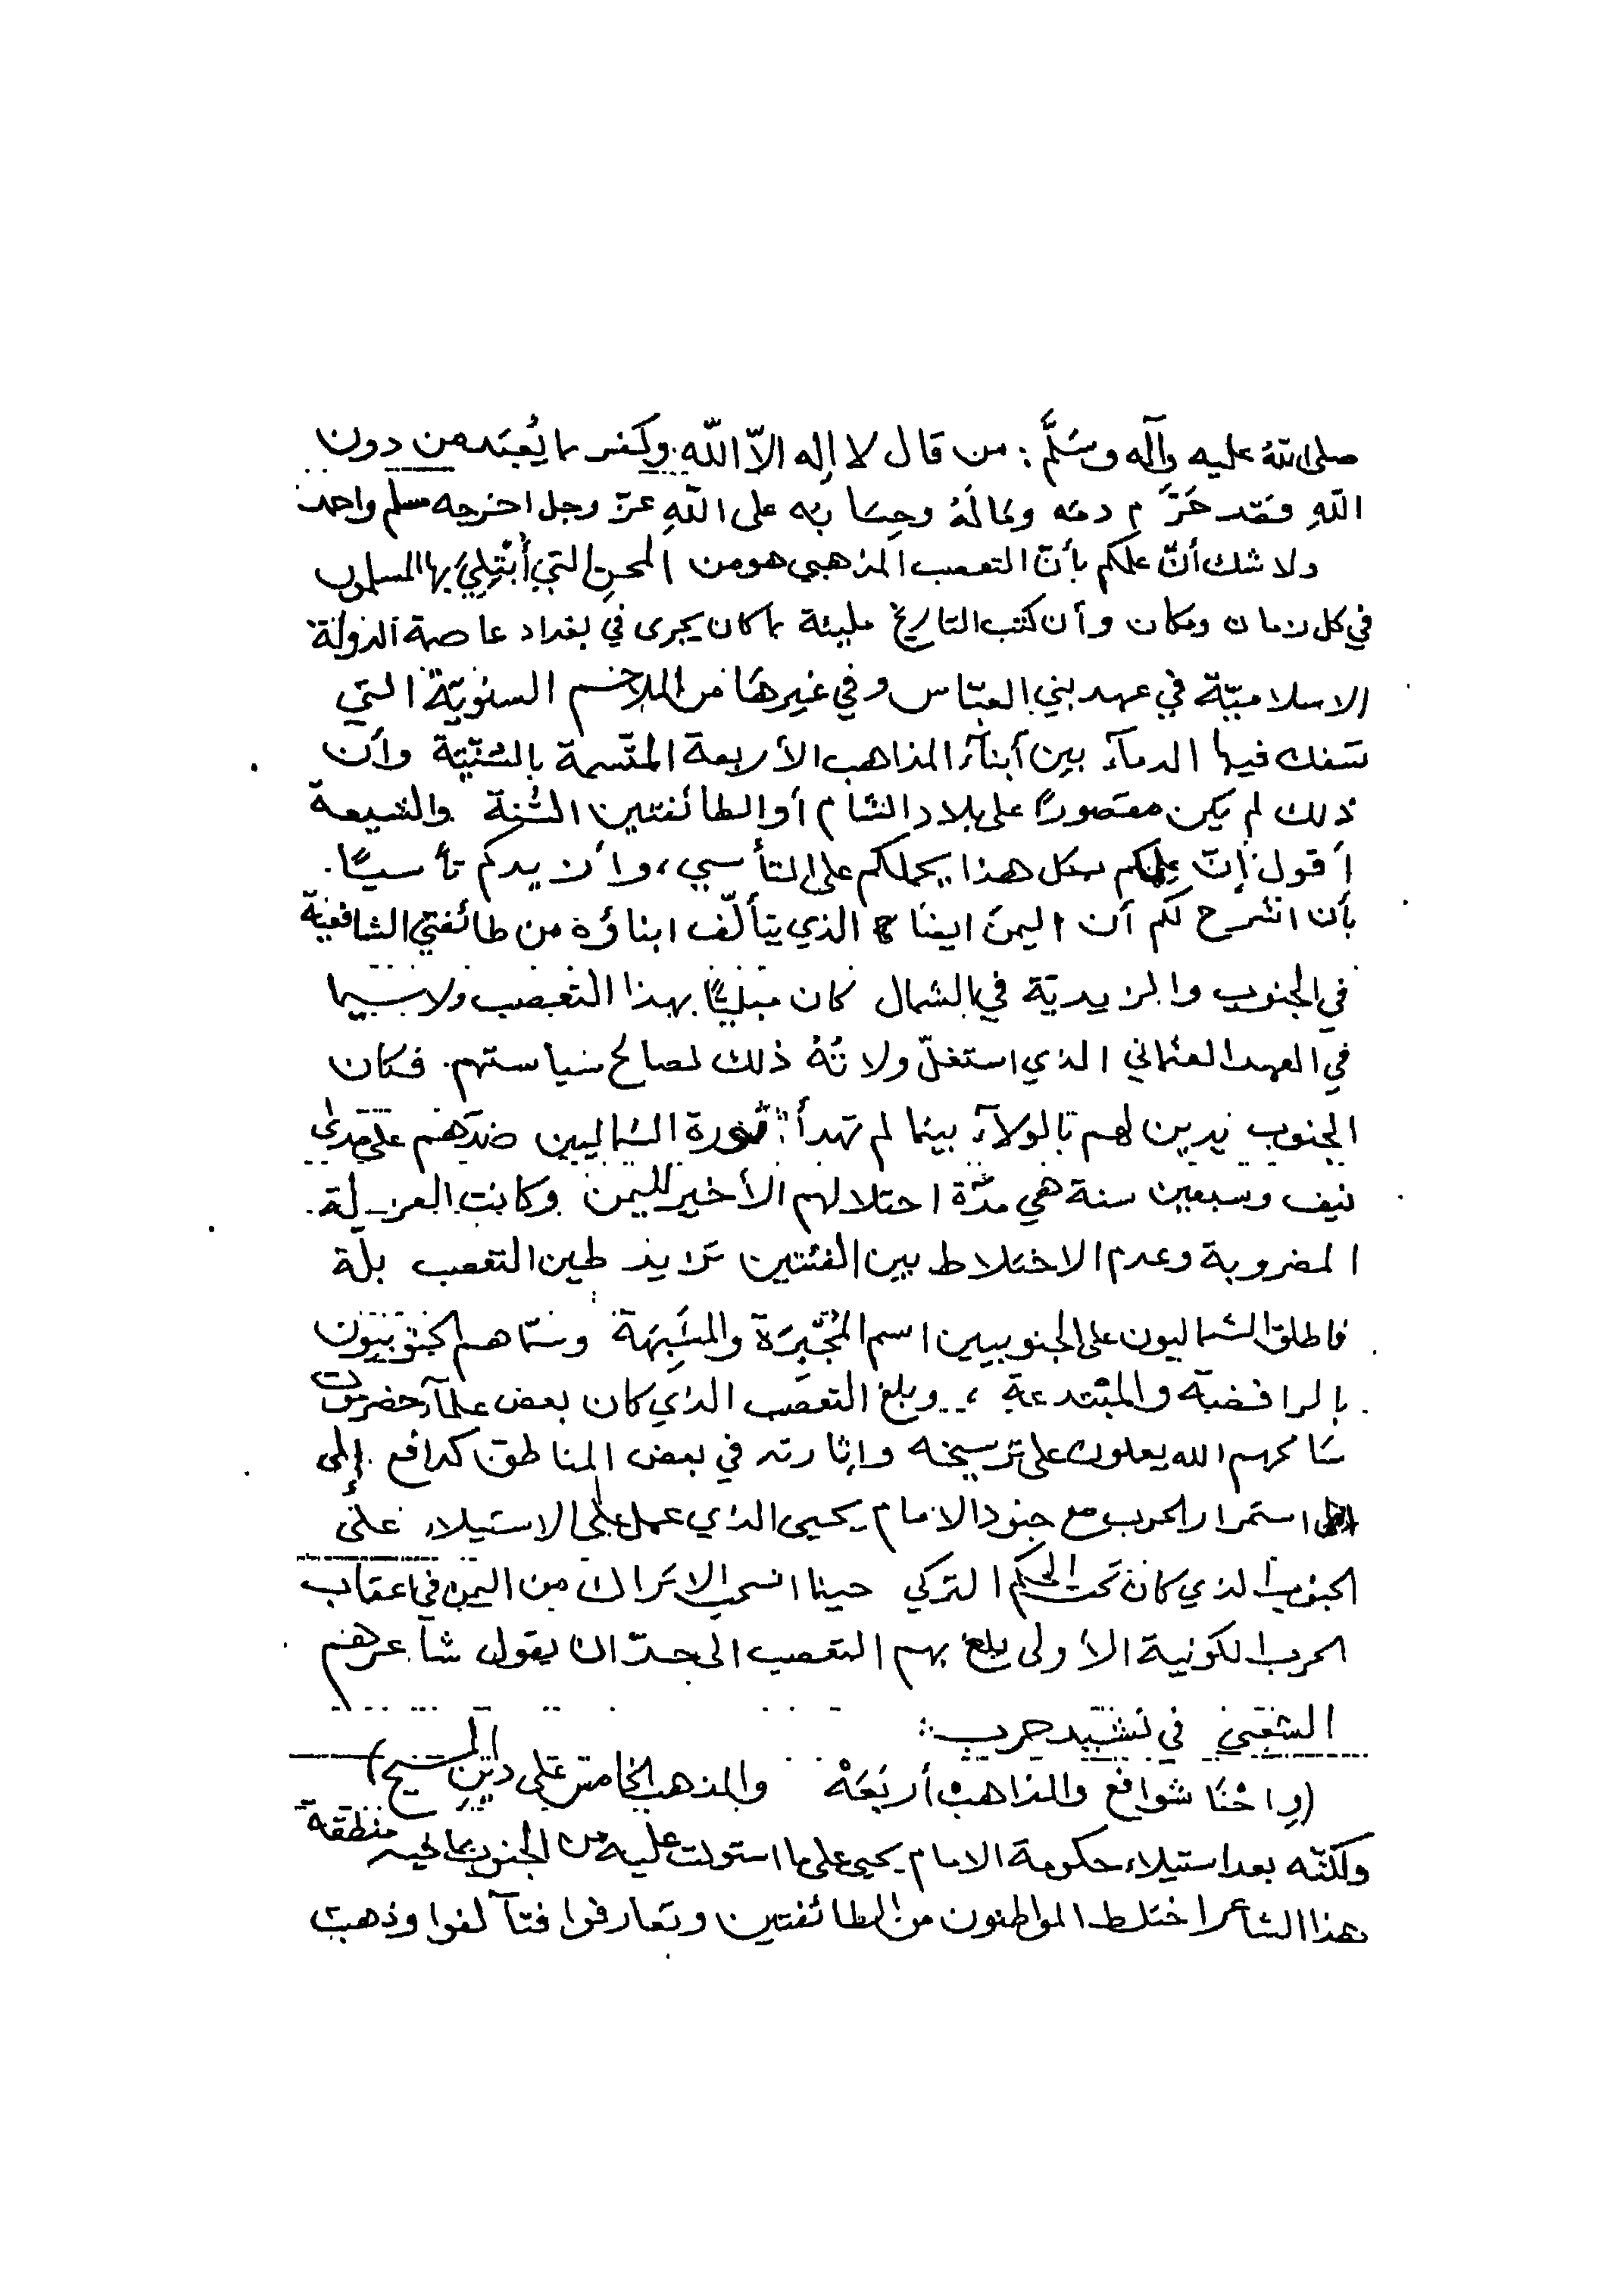 صلى الله عليه وآله وسَلَّم : من قال لا إله الاّ اللّه وكفر بما يُعبَد من دون
اللهِ فقد حَرَّم دمَه ومَالَهُ وحِسَابُه على اللهِ عزّ وجل اخرجه مسلم وأحمد
ولا شك أنّ علمكم بأنّ التعصب المذهبي هو من المحن التي أُبْتِلِيَ بها المسلمون
في كل زمان ومكان وأن كتب التاريخ مليئة بما كان يجرى في بغداد عاصمة الدولة
الاسلاميّة في عهد بني العبّاس وفي غيرها من الملاحم السنويّة التي
تسفك فيها الدمآء بين أبنآء المذاهب الأربعة المتّسمة بالسُّنيّة وأن
ذلك لم يكن مقصورًا على بلاد الشام أو الطائفتين السُّنة والشيعة
أقول إنّ علمكم بكل هذا يحملكم على التأسي ، وأن يدكم تأسيًا .
بأن اشرح لكم أن اليمن ايضًا الذي يتألّف ابناؤه من طائفتي الشافعيّة
في الجنوب والزيديّة في الشمال كان مبتليًا بهذا التعصب ولاسيما
في العهد العثماني الذي استغلّ ولاتُهُ ذلك لصالح سياستهم . فكان
الجنوب يدين لهم بالولآء بينما لم تهدأ ثورة الشماليين ضدهم على مدى
نيف وسبعين سنة هي مدّة احتلالهم الأخير لليمن وكانت العزلة
المضروبة وعدم الاختلاط بين الفئتين تزايد طين التعصب بلّة
فاطلق الشماليون على الجنوبيين اسم المُجْبِرَة والمشَبِّهَة وسمّاهم الجنوبيون
بالرافضة والمبْتدعة ، وبلغ التعصب الذي كان بعض علمآء حضرموت
سَامحهم الله يعملون على ترسيخه واثارته في بعض المناطق كدافع إلى
استمرار الحرب مع جنود الامام يحيى الذي عمل على الاستيلاء على
الجنوب الذي كان تحت الحكم التركي حينما انسحب الاتراك من اليمن في اعقاب
الحرب الكونية الأولى بلغ بهم التعصب الى حدّ ان يقول شاعرهم
الشعبي في نشيد حرب :
(واحْنَا شوافع والمذاهب أربَعَهْ والمذهب الخامس على دين المسيح)
ولكنّه بعد استيلاء حكومة الامام يحيى على ما استولت عليه من الجنوب بما فيه منطقة
هذا الشاعر اختلط المواطنون من الطائفتين وتعارفوا فتآلفوا وذهبت